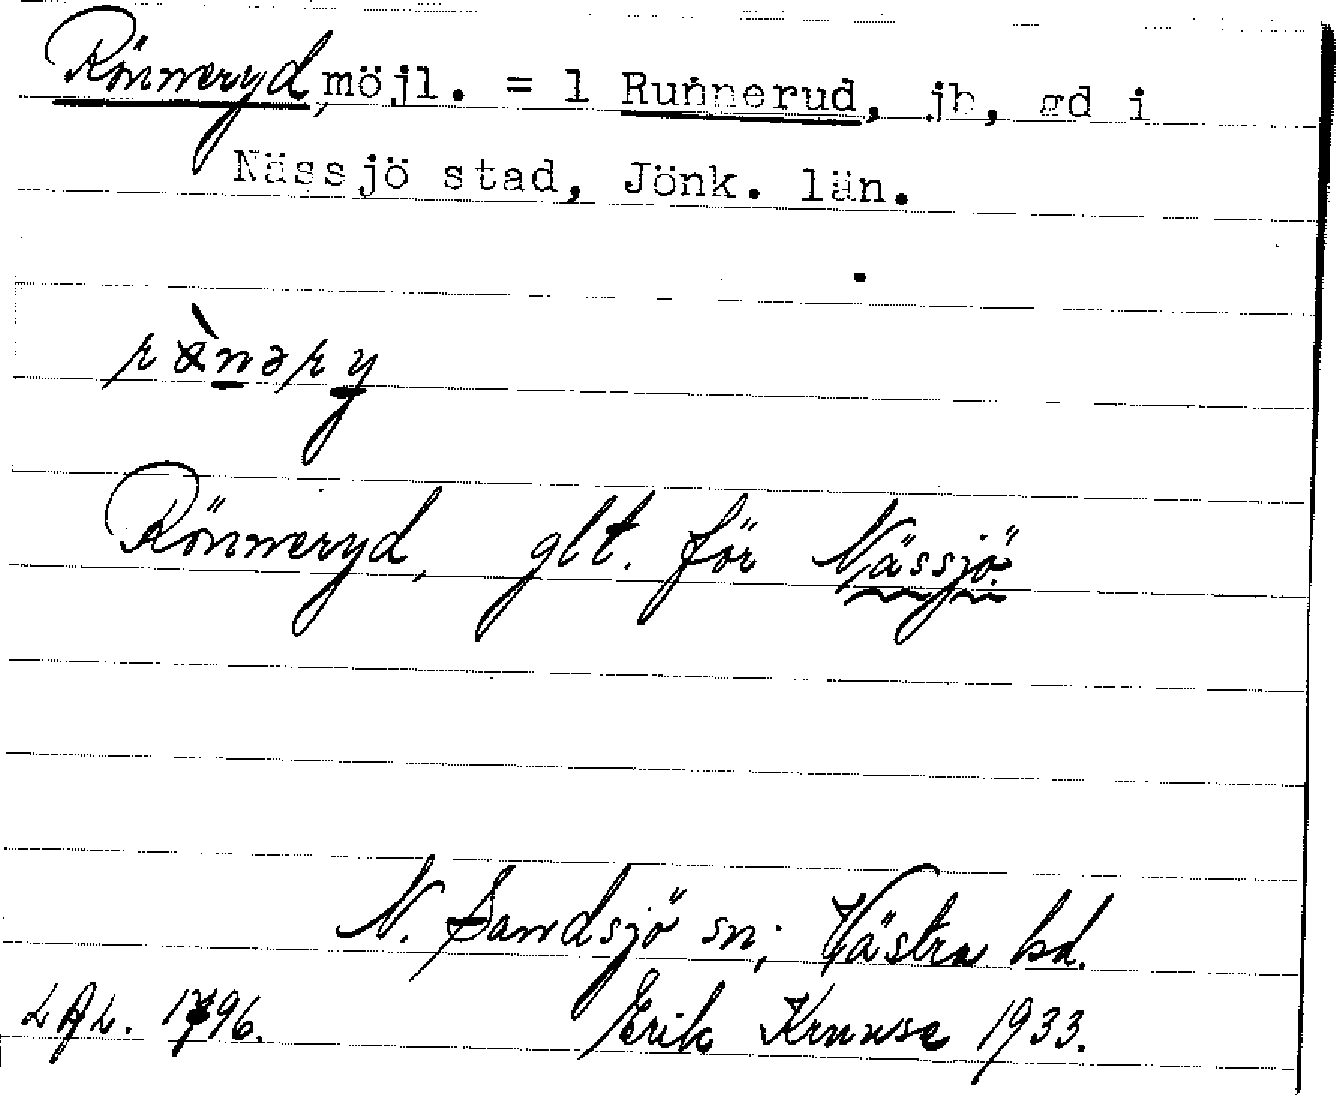 Rönneryd, möjl. = 1 Runnerud, jb, gd i
Nässjö stad, Jönk. län.
Rönneryd, glt. för Nässjö.
N. Sandsjö sn; Västra hd.
Erik Kruuse 1933.